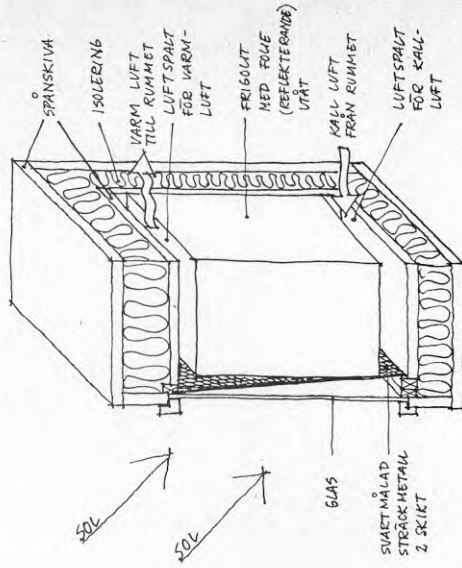 SPÅNSKIVA
ISOLERING
VARM LUFT
TILL RUMMET
LUFTSPALT
FÖR VARM-
LUFT
FRIGOLIT
MED FOLIE
(REFLEKTERANDE)
UTÅT
KALL LUFT
FRÅN RUMMET
LUFTSPALT
FÖR KALL-
LUFT
SOL
SOL
GLAS
SVARTMÅLAD
STRÄCKMETALL
2 SKIKT